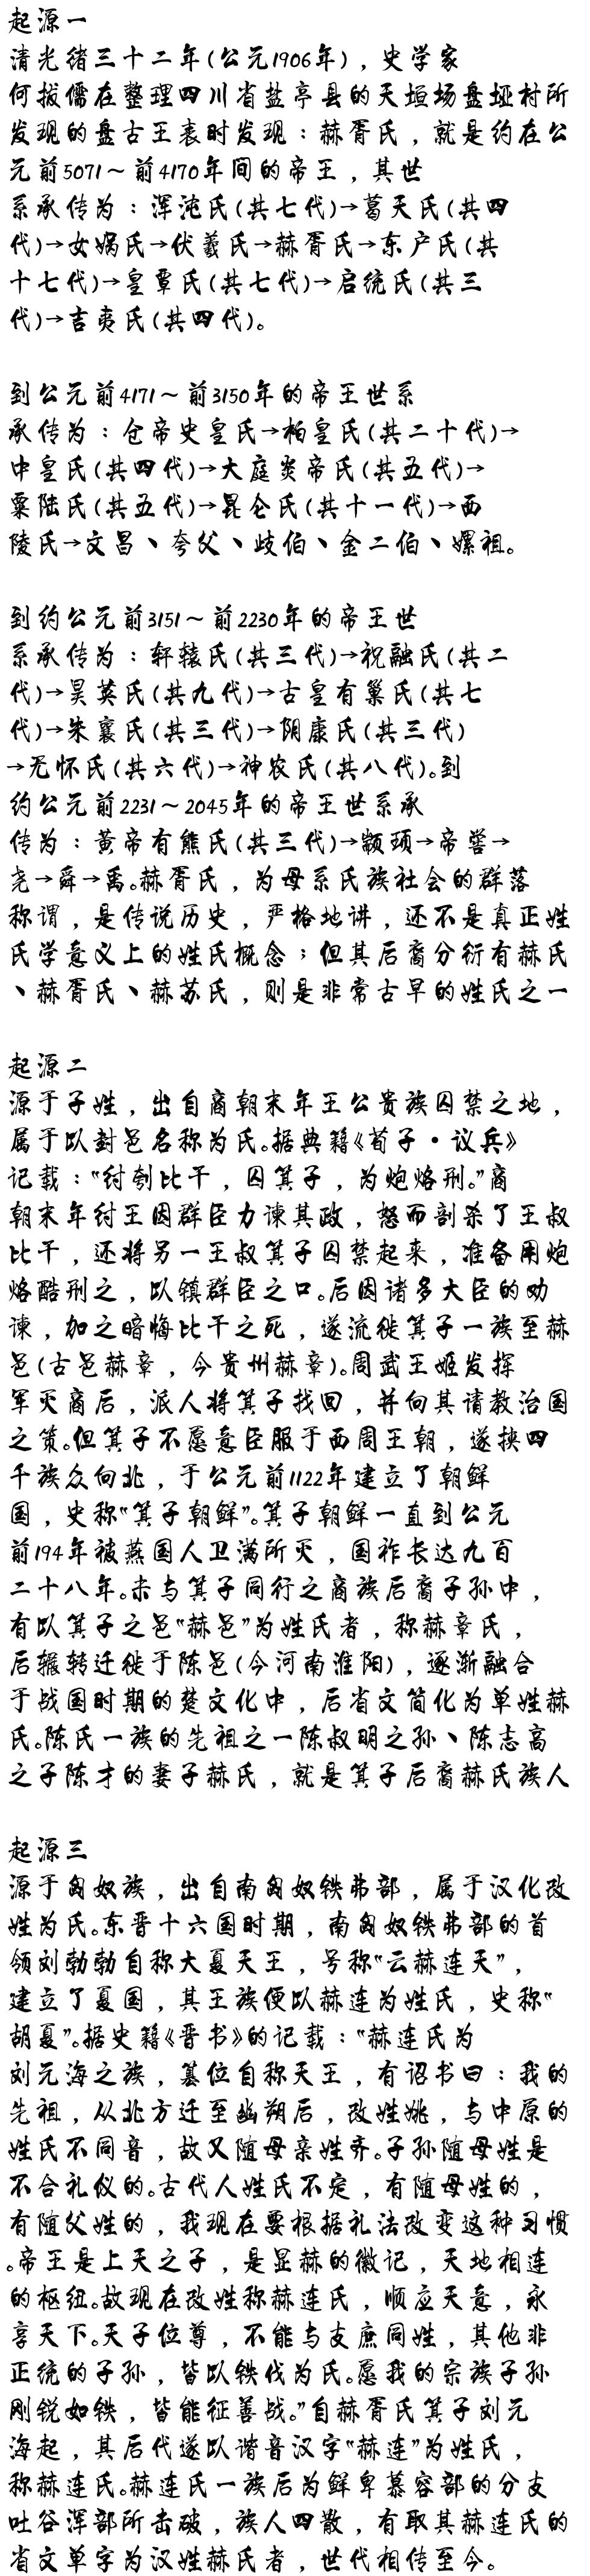 起源一
清光绪三十二年(公元1906年)，史学家
何拔儒在整理四川省盐亭县的天垣场盘垭村所
发现的盘古王表时发现：赫胥氏，就是约在公
元前5071～前4170年间的帝王，其世
系承传为：浑沌氏(共七代)→葛天氏(共四
代)→女娲氏→伏羲氏→赫胥氏→东户氏(共
十七代)→皇覃氏(共七代)→启统氏(共三
代)→吉夷氏(共四代)。
到公元前4171～前3150年的帝王世系
承传为：仓帝史皇氏→柏皇氏(共二十代)→
中皇氏(共四代)→大庭炎帝氏(共五代)→
粟陆氏(共五代)→昆仑氏(共十一代)→西
陵氏→文昌、夸父、歧伯、金二伯、嫘祖。
到约公元前3151～前2230年的帝王世
系承传为：轩辕氏(共三代)→祝融氏(共二
代)→昊英氏(共九代)→古皇有巢氏(共七
代)→朱襄氏(共三代)→阴康氏(共三代)
→无怀氏(共六代)→神农氏(共八代)。到
约公元前2231～2045年的帝王世系承
传为：黄帝有熊氏(共三代)→颛顼→帝喾→
尧→舜→禹。赫胥氏，为母系氏族社会的群落
称谓，是传说历史，严格地讲，还不是真正姓
氏学意义上的姓氏概念；但其后裔分衍有赫氏
、赫胥氏、赫苏氏，则是非常古早的姓氏之一
起源二
源于子姓，出自商朝末年王公贵族囚禁之地，
属于以封邑名称为氏。据典籍《荀子·议兵》
记载：“纣刳比干，囚箕子，为炮烙刑。”商
朝末年纣王因群臣力谏其政，怒而剖杀了王叔
比干，还将另一王叔箕子囚禁起来，准备用炮
烙酷刑之，以镇群臣之口。后因诸多大臣的劝
谏，加之暗悔比干之死，遂流徙箕子一族至赫
邑(古邑赫章，今贵州赫章)。周武王姬发挥
军灭商后，派人将箕子找回，并向其请教治国
之策。但箕子不愿意臣服于西周王朝，遂挟四
千族众向北，于公元前1122年建立了朝鲜
国，史称“箕子朝鲜”。箕子朝鲜一直到公元
前194年被燕国人卫满所灭，国祚长达九百
二十八年。未与箕子同行之商族后裔子孙中，
有以箕子之邑“赫邑”为姓氏者，称赫章氏，
后辗转迁徙于陈邑(今河南淮阳)，逐渐融合
于战国时期的楚文化中，后省文简化为单姓赫
氏。陈氏一族的先祖之一陈叔明之孙、陈志高
之子陈才的妻子赫氏，就是箕子后裔赫氏族人
起源三
源于匈奴族，出自南匈奴铁弗部，属于汉化改
姓为氏。东晋十六国时期，南匈奴铁弗部的首
领刘勃勃自称大夏天王，号称“云赫连天”，
建立了夏国，其王族便以赫连为姓氏，史称“
胡夏”。据史籍《晋书》的记载：“赫连氏为
刘元海之族，篡位自称天王，有诏书曰：我的
先祖，从北方迁至幽朔后，改姓姚，与中原的
姓氏不同音，故又随母亲姓齐。子孙随母姓是
不合礼仪的。古代人姓氏不定，有随母姓的，
有随父姓的，我现在要根据礼法改变这种习惯
。帝王是上天之子，是显赫的徽记，天地相连
的枢纽。故现在改姓称赫连氏，顺应天意，永
享天下。天子位尊，不能与支庶同姓，其他非
正统的子孙，皆以铁伐为氏。愿我的宗族子孙
刚锐如铁，皆能征善战。”自赫胥氏箕子刘元
海起，其后代遂以谐音汉字“赫连”为姓氏，
称赫连氏。赫连氏一族后为鲜卑慕容部的分支
吐谷浑部所击破，族人四散，有取其赫连氏的
省文单字为汉姓赫氏者，世代相传至今。